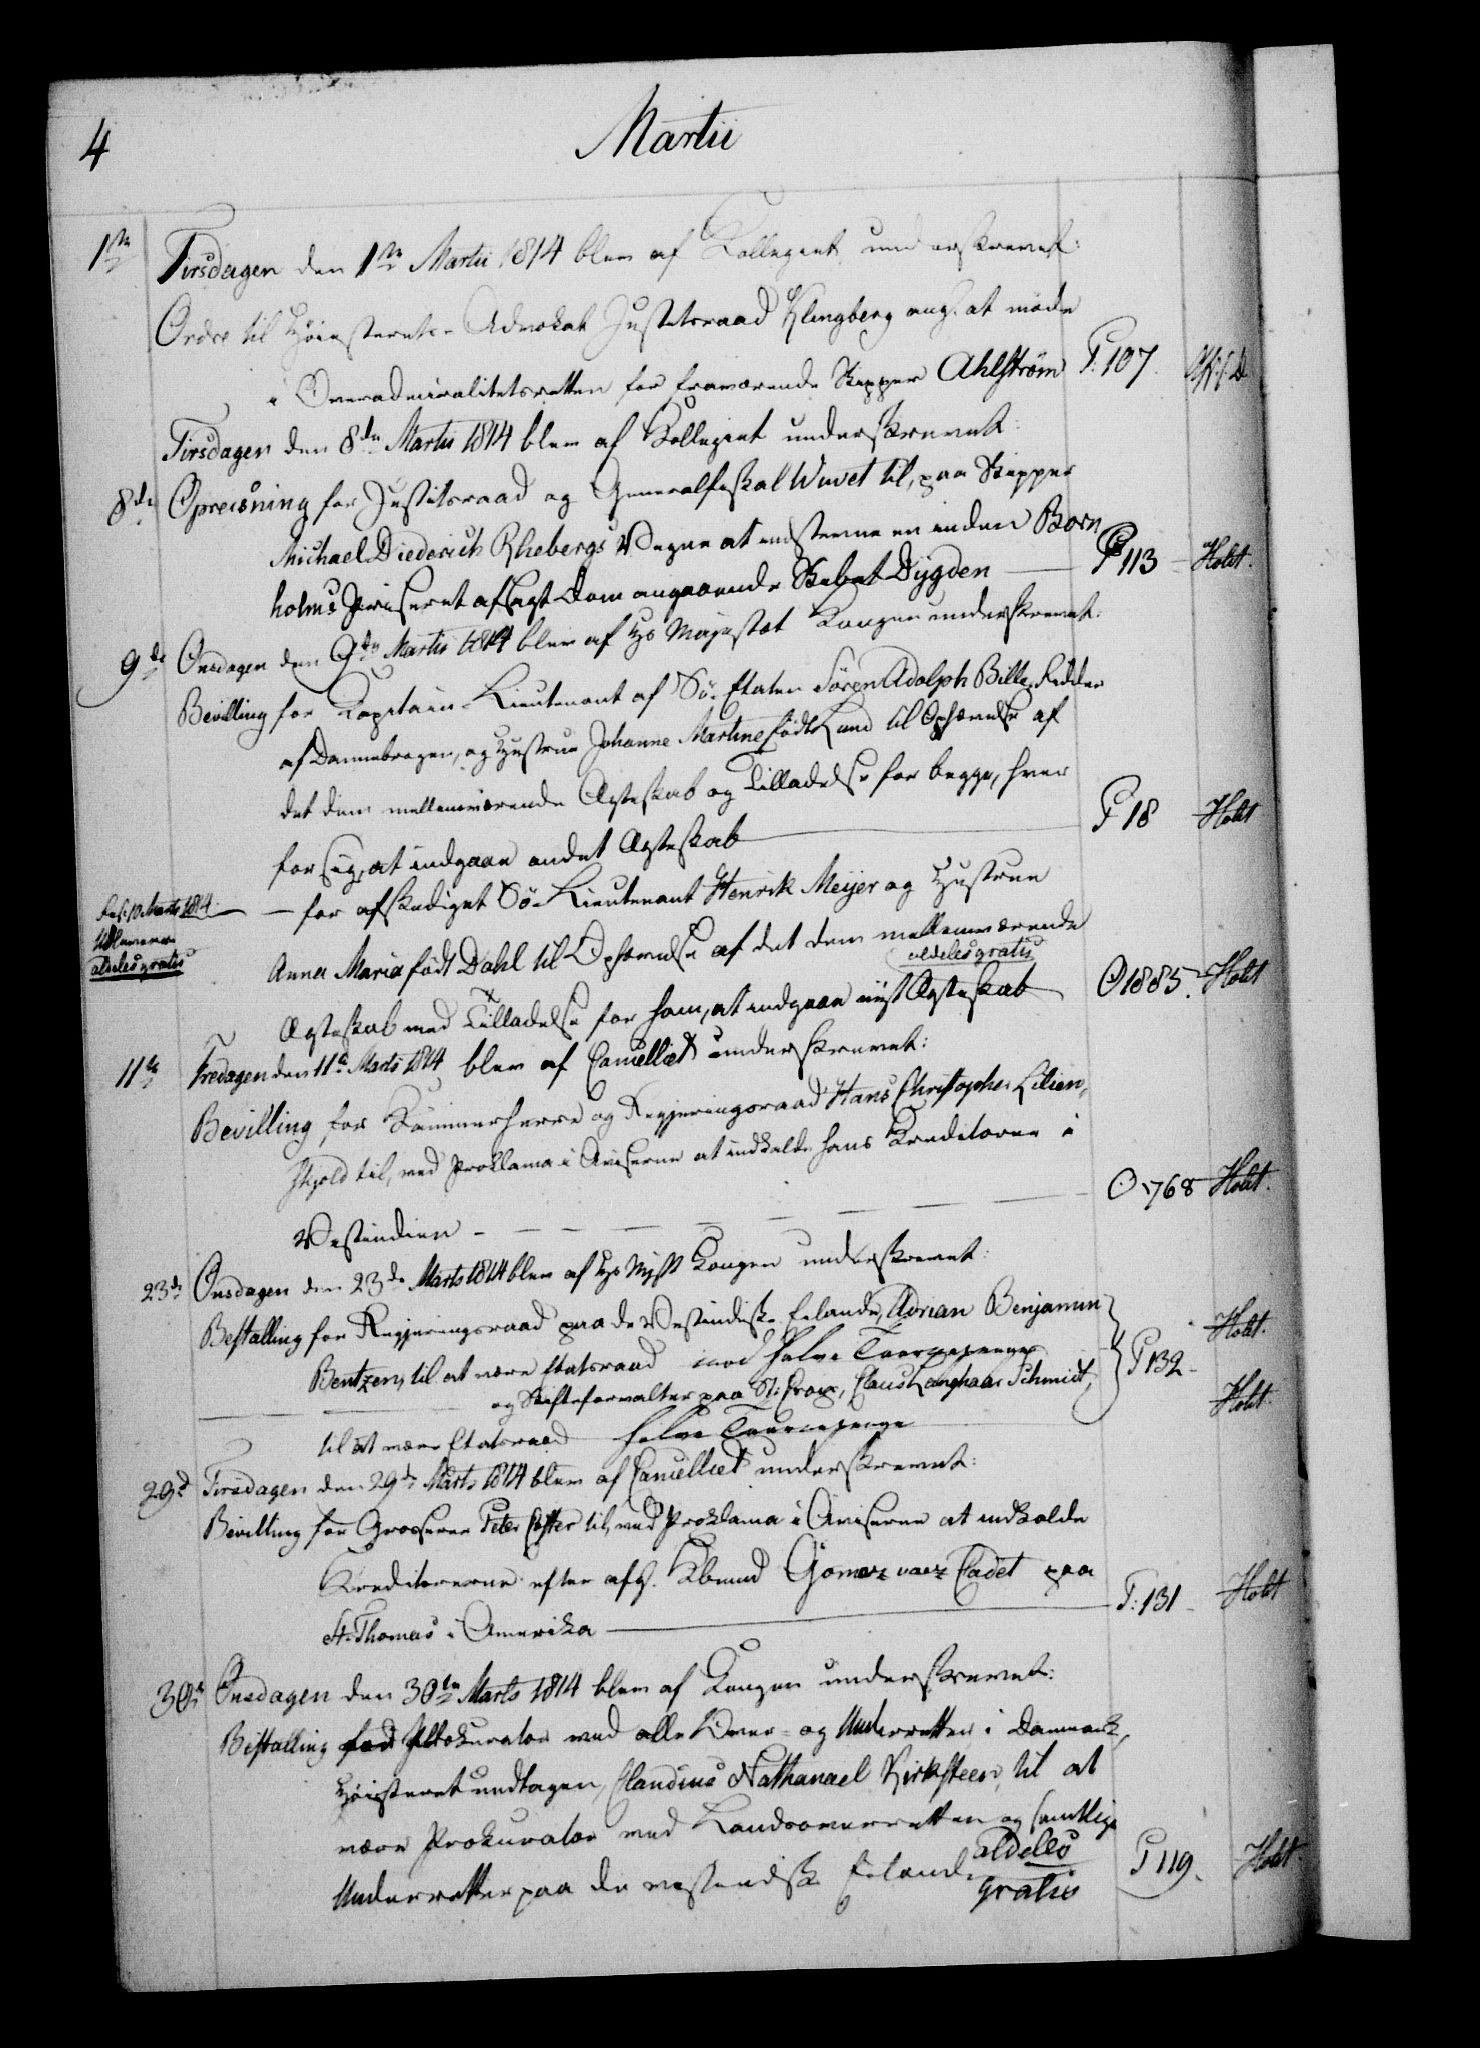 4
Martii
1te
Tirsdagen den 1te Martii 1814 blev af Kollegiet underskrevet:
Ordre til Høiesterets-Advokat Justitsraad Klingberg ang. at møde
i Overadmiralitetsretten for fraværende Skipper Ahlström
P: 107.
Tirsdagen den 8de Martii 1814 blev af Kollegiet underskrevet:
8de
Opreisning for Justitsraad og Generalfiskal Wivet til, paa Skipper
Michael Diederich Rhebergs Vegne at indstevne en inden Born
holms Priseret afsagt Dom angaaende Skibet Dygden
P 113 - Holst.
9de
Onsdagen den 9de Martii 1814 blev af Hs Majestæt Kongen underskrevet:
Bevilling for Kapitain-Lieutenant af Sø-Etaten Sören Adolph Bille, Ridder
af Dannebrogen, og Hustrue Johanne Martine født Lund til Ophævelse af
det dem mellemværende Ægteskab og Tilladelse for begge, hver
for sig, at indgaae andet Ægteskab
P 18 Holst
- for afskediget Sø-Lieutenant Henrik Meyer og Hustrue
Marts 1814
aldeles gratis
Anna Maria født Dahl til Ophævelse af det dem mellemværende
aldeles gratis
Ægteskab med Tilladelse for ham, at indgaae nyt Ægteskab
O 1885. Holst
11te
Fredagen den 11te Marts 1814 blev af Cancelliet underskrevet:
Bevilling for Kammerherre og Regjeringsraad Hans Christopher Lilien-
skjold til, ved Proklama i Aviserne at indkalde hans Kreditorer i
Vestindien
O 768 Holst.
23de
Onsdagen den 23de Marts 1814 blev af Hs Mjst Kongen underskrevet:
Bestalling for Regjeringsraad paa de Vestindiske Eilande, Adrian Benjamin
Bentzen, til at være Etatsraad mod halve
Holst.
og Skifteforvalter paa St: Croix, Claus Langhaar Schmidt,
P 132 -
Holst.
til at være Etatsraad halve
29de
Tirsdagen den 29de Marts 1814 blev af Cancelliet underskrevet:
Bevilling for Grosserer Peter til, ved Proklama i Aviserne at indkalde
Kreditorerne efter afg. Kbmd Gomez vaez Cadet paa
St. Thomas i Amerika
P: 131 - Holst
30te
Onsdagen den 30te Marts 1814 blev af Kongen underskrevet:
Bestalling for Prokurator ved alle Over- og Underretter i Danmark,
Høiesteret undtagen, Claudius Nathanael Kirksteen, til at
være Prokurator ved Landsoverretten og samtlige
Underretter paa de vestindiske Eilande aldeles
gratis
P 119. Holst.